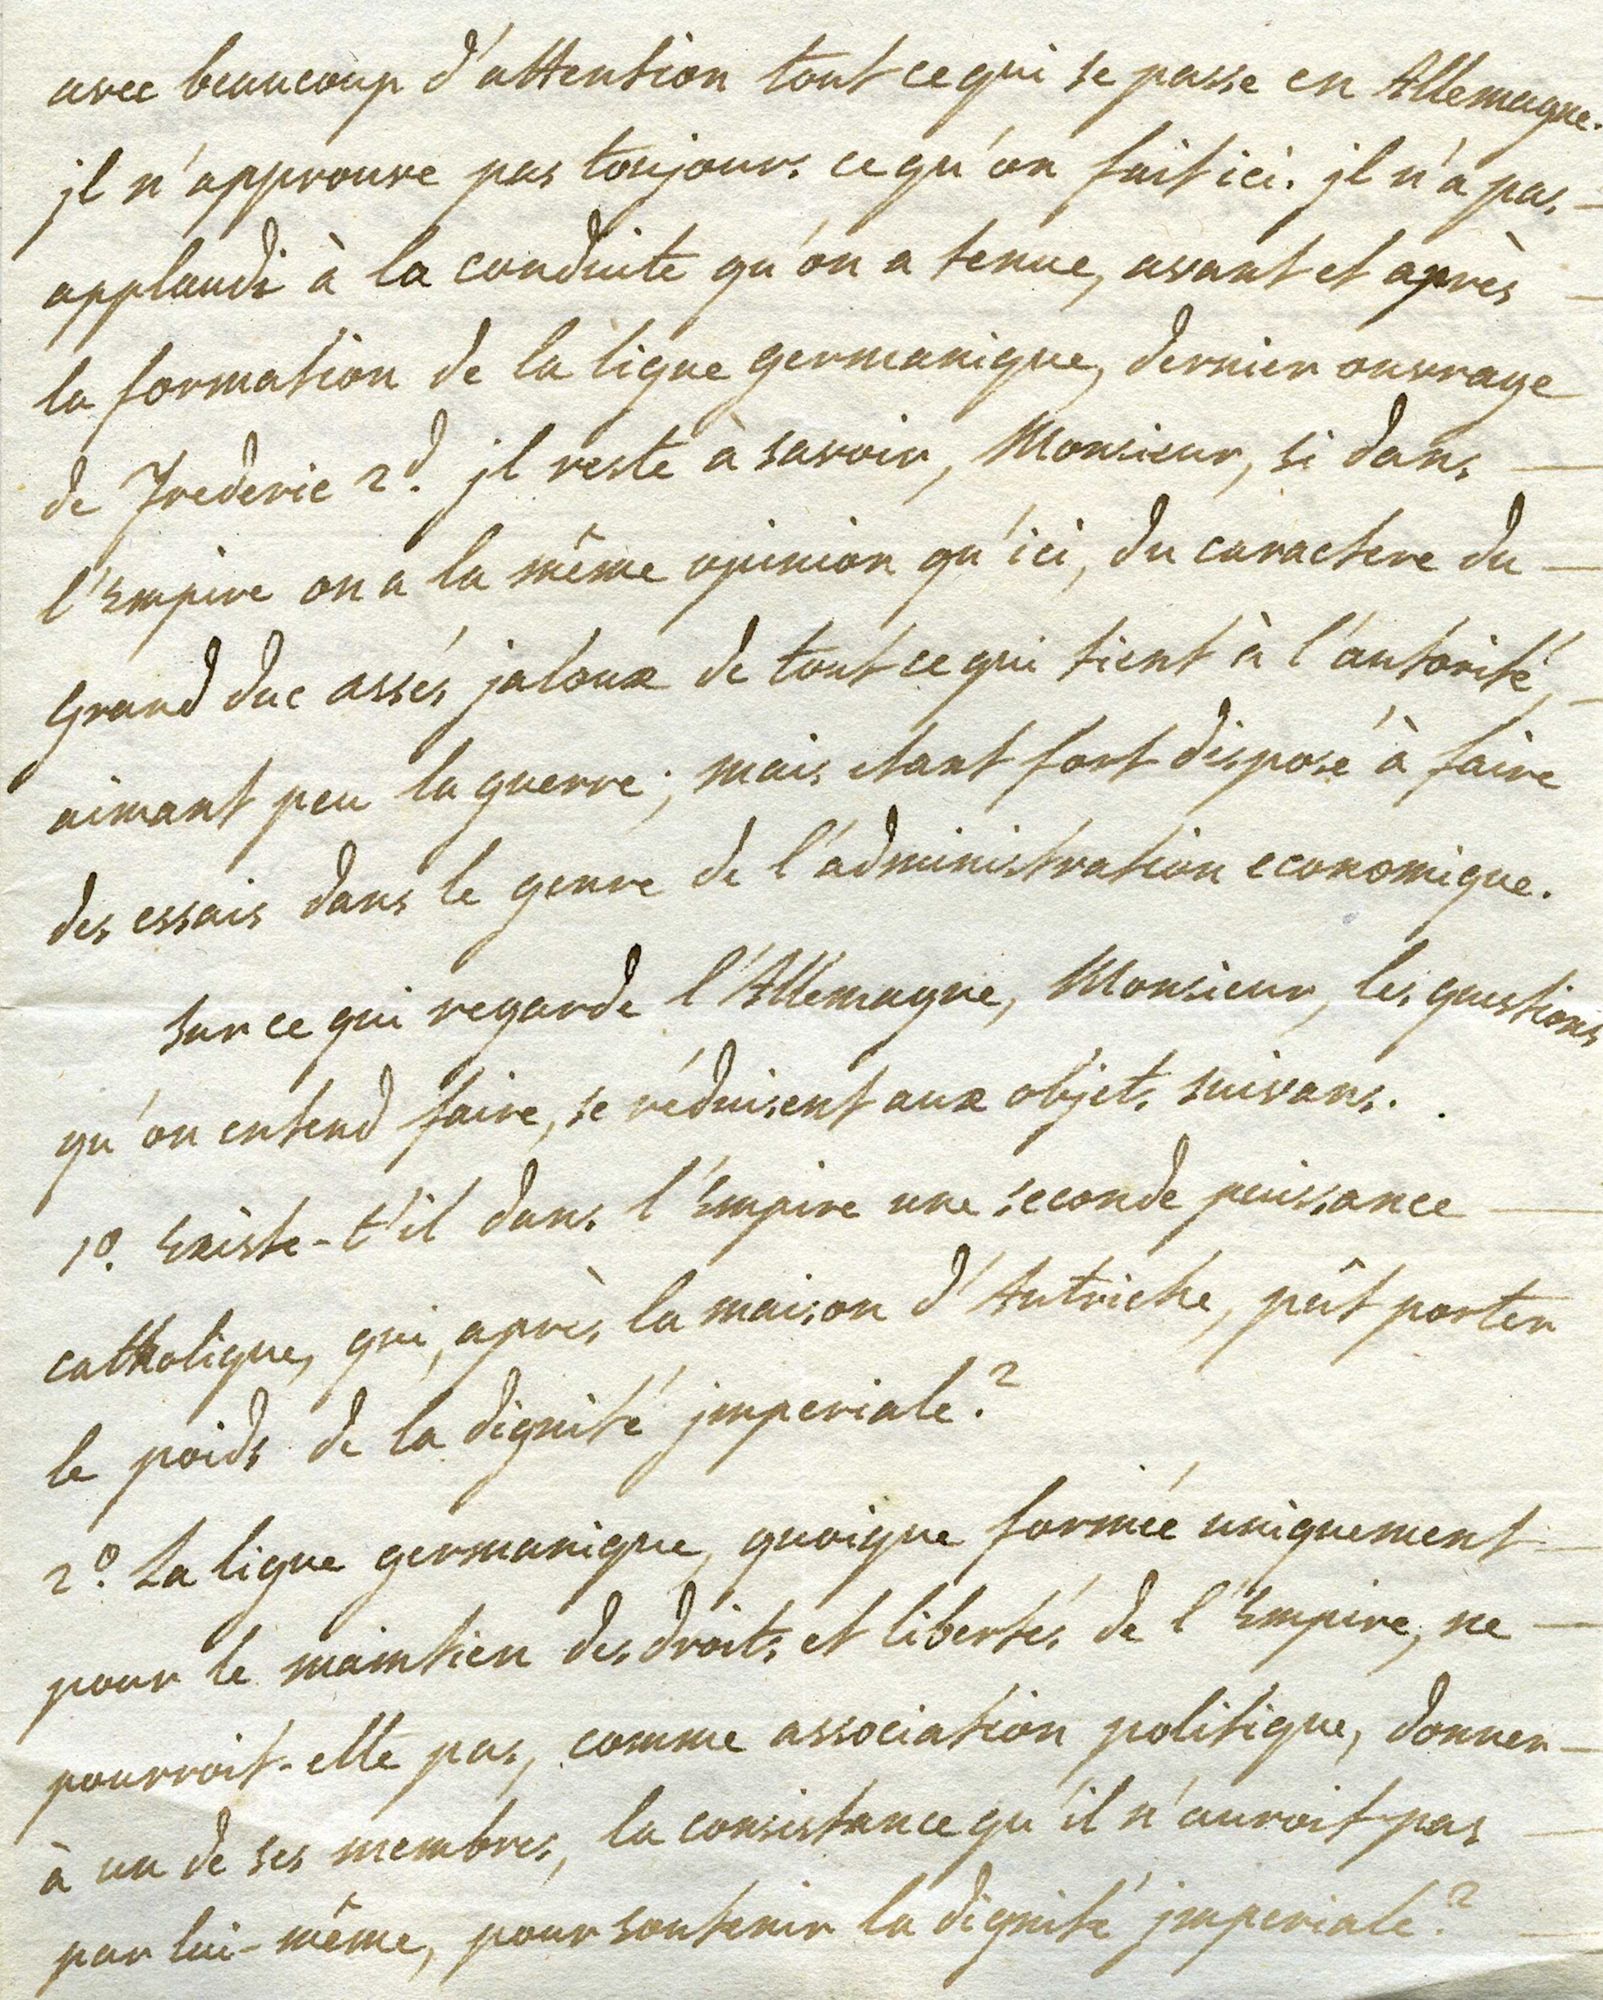 avec beaucoup d'attention tout ce qui se passe en Allemagne.
jl n'approuve pas toujours ce qu'on fait ici. jl n'a pas
applaudi à la conduite qu'on a tenue, avant et après
la formation de la ligue germanique, dernier ouvrage
de Frederic 2d. jl reste à savoir, Monsieur, si dans
l'Empire on a la même opinion qu'ici, du caractere du
grand duc assés jaloux de tout ce qui tient à l'autorité,
aimant peu la guerre; mais etant fort disposé à faire
des essais dans le genre de l'administration economique.
sur ce qui regarde l'Allemagne, Monsieur, les questions
qu'on entend faire, se réduisent aux objets suivans.
1º. Existe-t'il dans l'Empire une seconde puissance
catholique, qui, après la maison d'Autriche, pût porter
le poids de la dignité jmperiale?
2º. La ligue germanique, quoique formée uniquement
pour le maintien des droits et libertés de l'Empire, ne
pourroit-elle pas, comme association politique, donner
à un de ses membres, la consistance qu'il n'auroit pas
par lui-même, pour soutenir la dignité jmperiale?